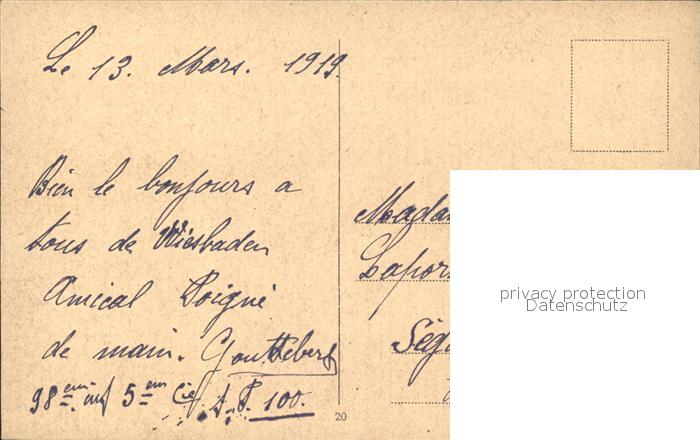 Le 13. Mars. 1919.
Bien le bonjours a
tous de Wiesbaden
Amical Poigné
de main.
98 eme inf 5 em Cie S. P. 100.
Madam
Lapor
Ség
20
privacy protection
Datenschutz